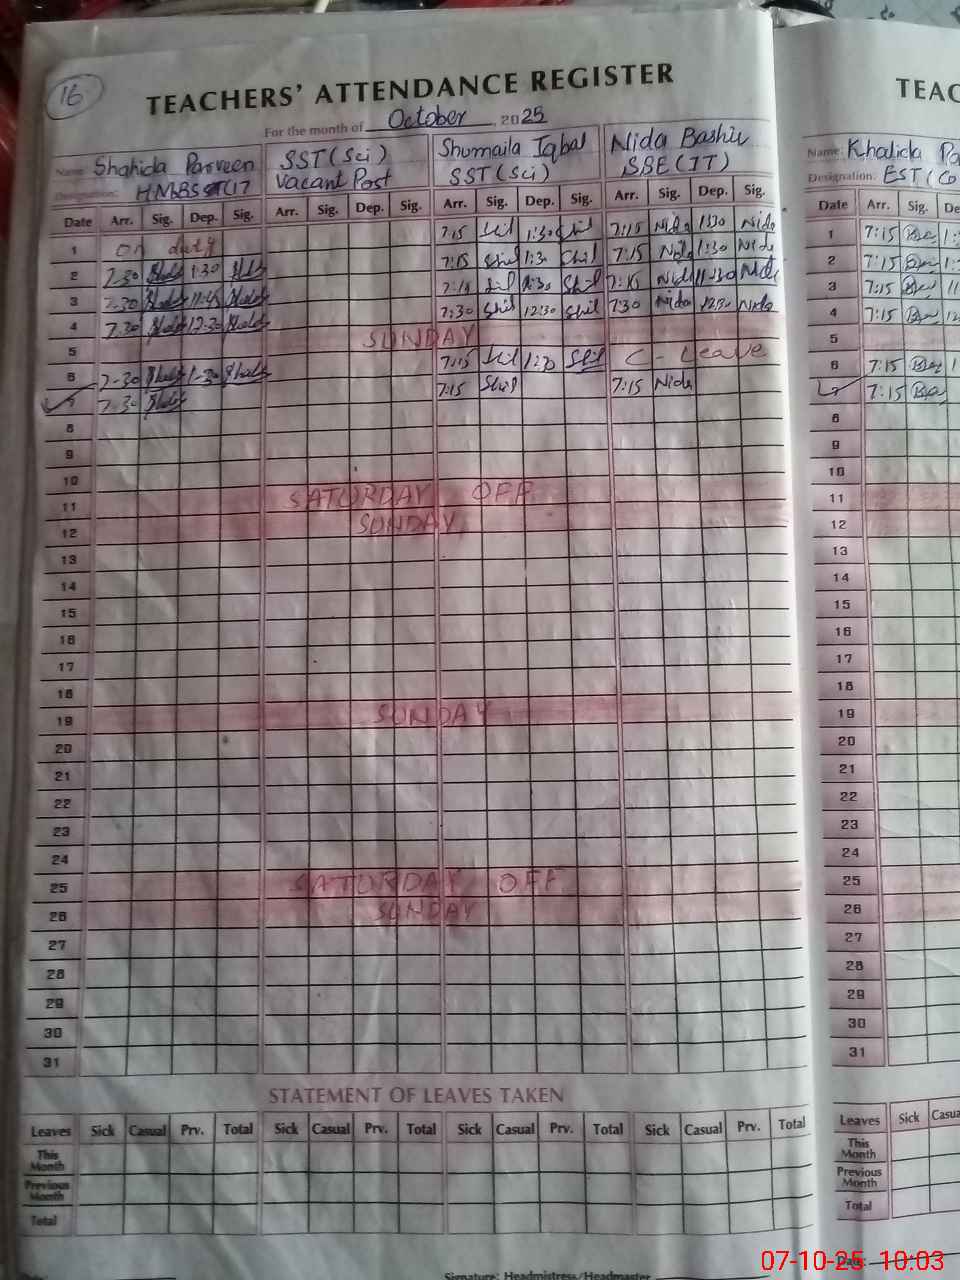 16
TEACHERS' ATTENDANCE REGISTER
For the month of October, 2025
Name: Shahida Parveen SST (Sci) Shumaila Iqbal Nida Bashir
Designation: Vacant Post SST (Sci) SSE (IT)
Date Arr. Sig. Dep. Sig. Arr. Sig. Dep. Sig. Arr. Sig. Dep. Sig. Arr. Sig. Dep. Sig.
1 on duty 7:15 1:30 7:15 Nida 1:30 Nida
2 7-30 1:30 7:15 1:30 7:15 Nida 1:30 Nida
3 7-30 11:45 Nida Nida
4 7.30 12-30 7:30 12:30 7:30 Nida 12:30 Nida
5 SUNDAY
6 7-30 1-30 7:15 1:30 C - Leave
7 7-30 7:15 7:15 Nida
8
9
10
11 SATURDAY OFF
12 SUNDAY
13
14
15
16
17
18
19 SUNDAY
20
21
22
23
24
25 SATURDAY OFF
26 SUNDAY
27
28
29
30
31
STATEMENT OF LEAVES TAKEN
Leaves Sick Casual Prv. Total Sick Casual Prv. Total Sick Casual Prv. Total Sick Casual Prv. Total
This Month
Previous Month
Total
Signature: Headmistress/Headmaster
TEAC
Name: Khalida Pa
Designation: EST (Co
Date Arr. Sig. De
1 7:15
2 7:15
3 7:15
4 7:15
5
6 7:15
7 7:15
8
9
10
11
12
13
14
15
16
17
18
19
20
21
22
23
24
25
26
27
28
29
30
31
Leaves Sick Casua
This Month
Previous Month
Total
Date:
07-10-25 10:03